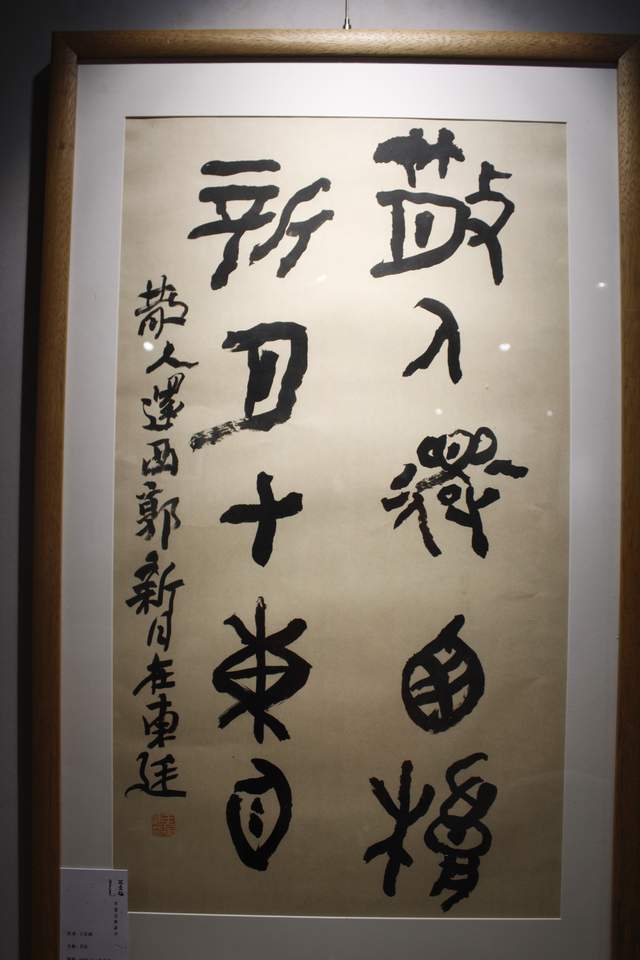 散人還西郭
新月在東廷
散人還西郭新月在東廷